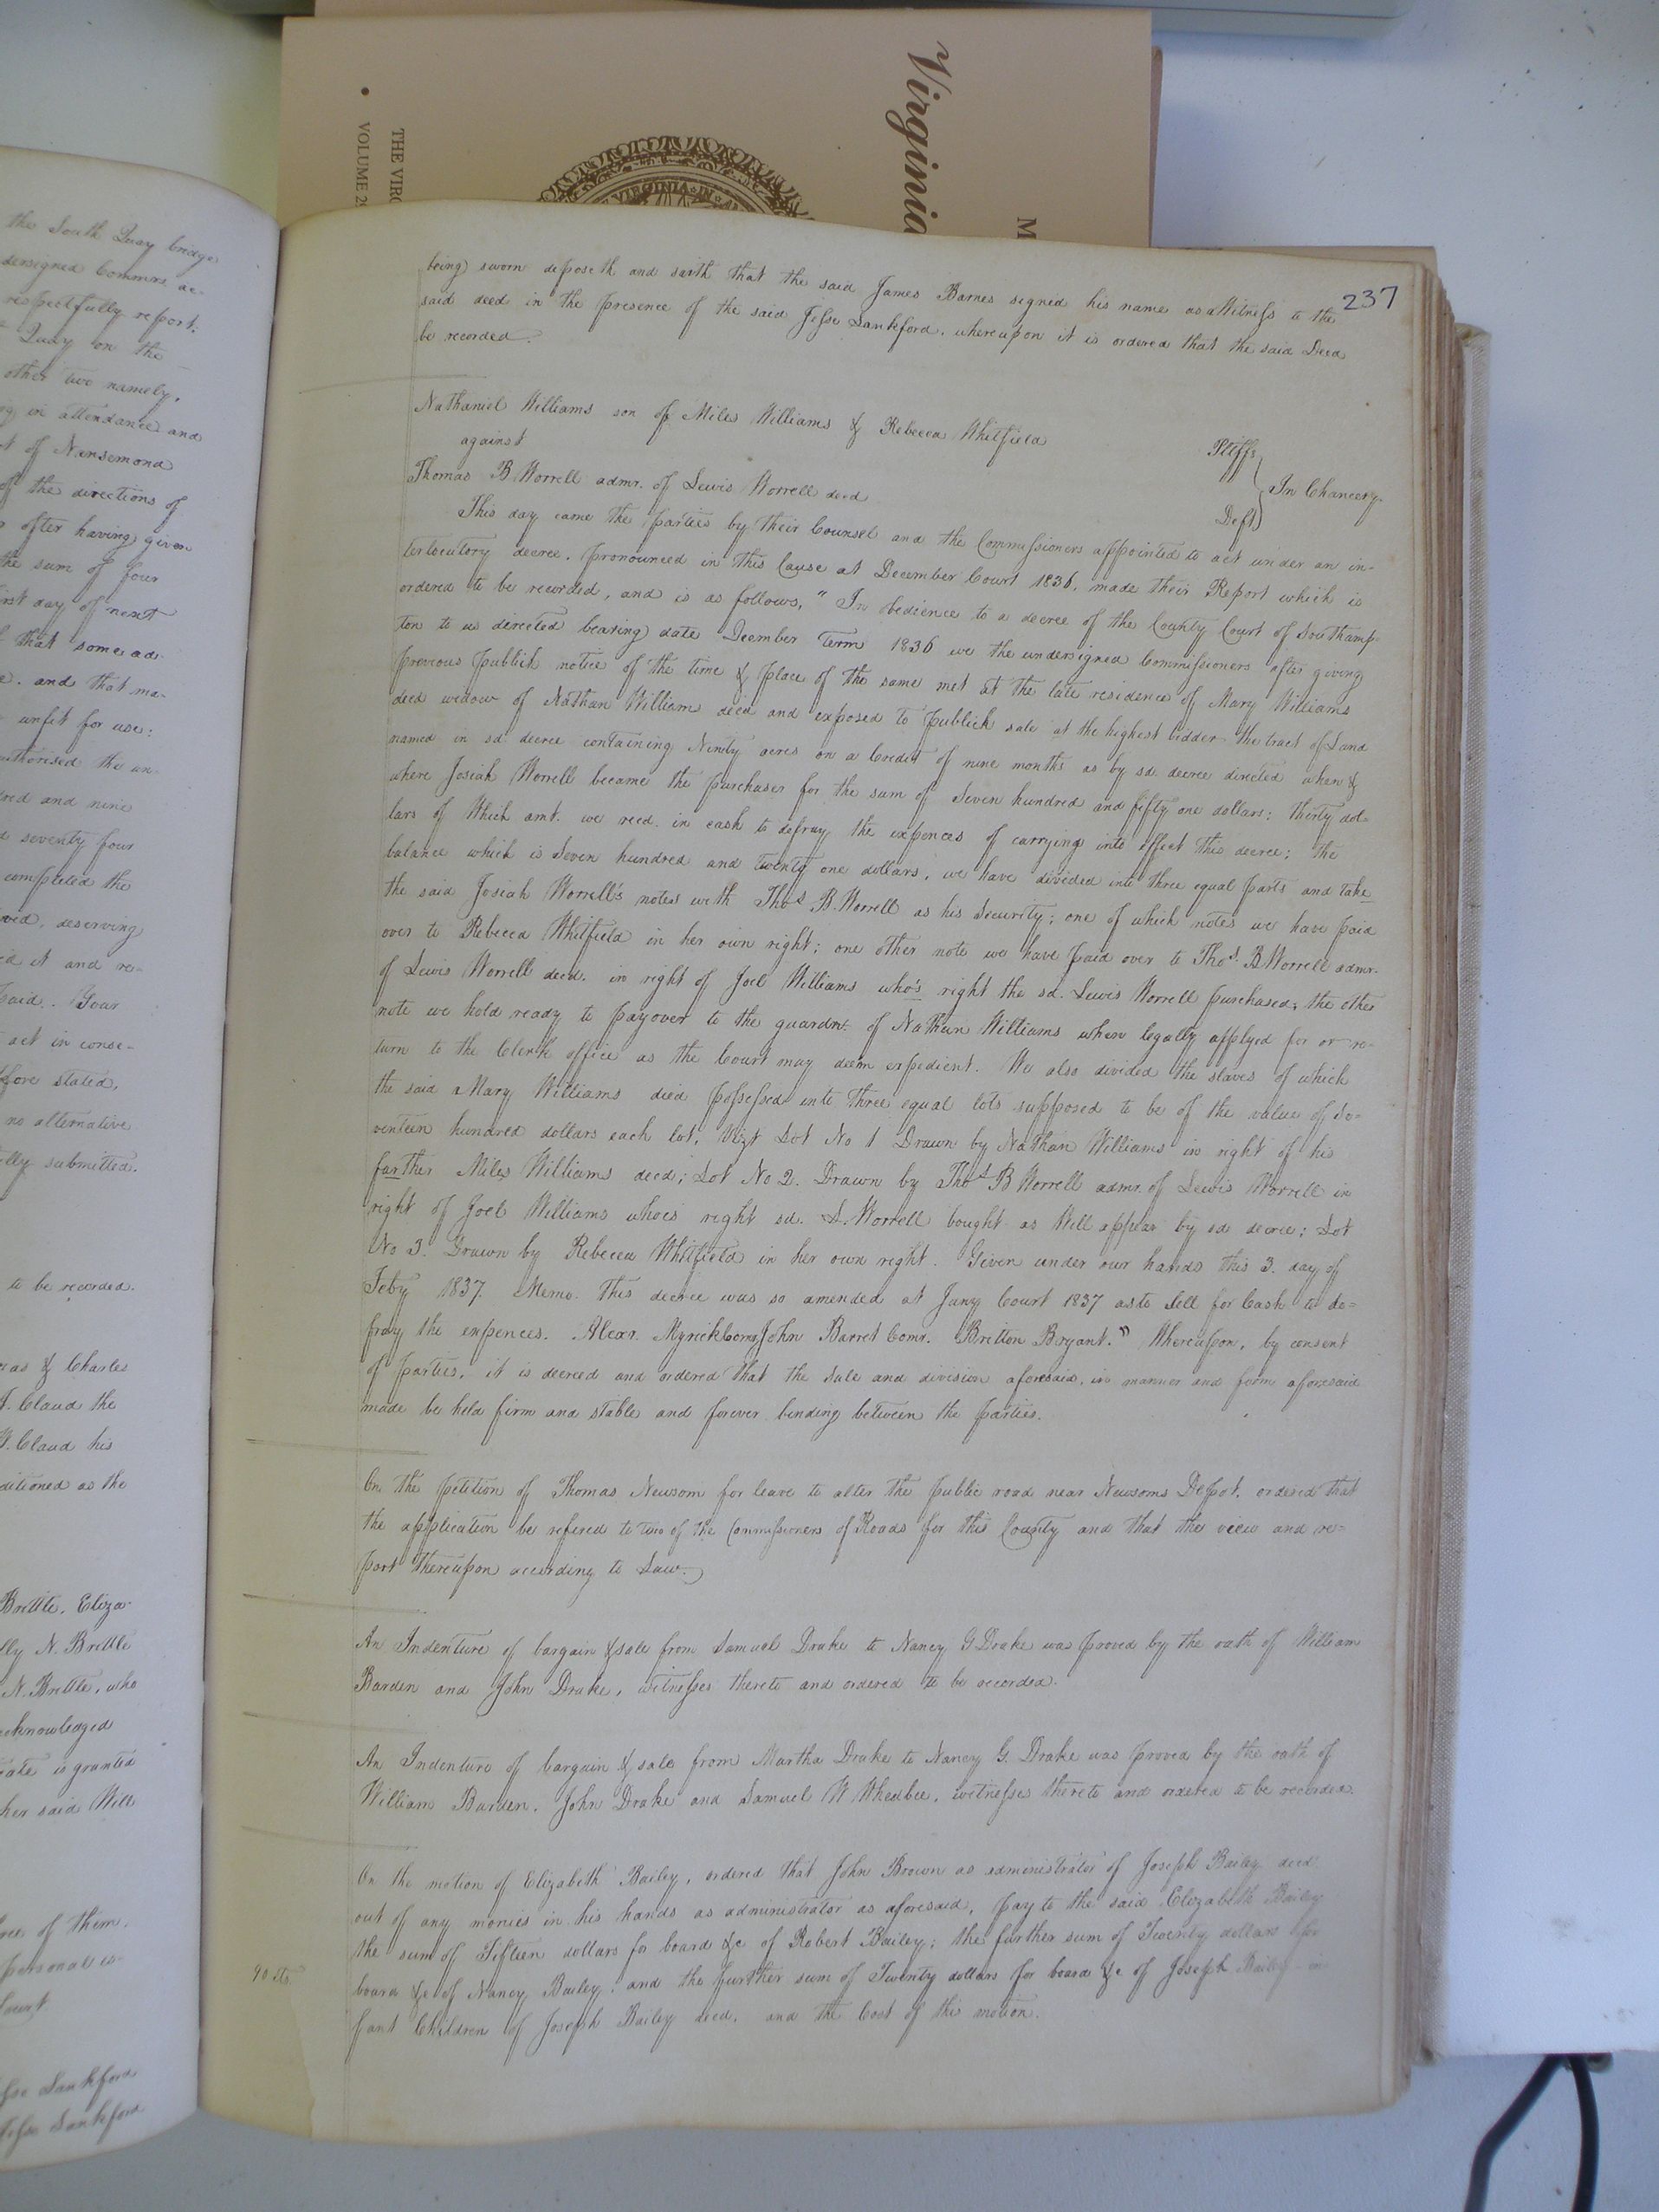 Virginia
M
THE VIRG
VOLUME 2
VIRGINIA IN
the South Quay bridge
dersigned Commrs. ac-
respectfully report,
Quay on the
other two namely,
in attendance and
of Nansemond
of the directions of
after having given
the sum of four
first day of next
that some ad-
and that ma-
unfit for use:
authorised the un-
red and nine
seventy four
completed the
deserving
it and re-
paid. Your
act in conse-
fore stated,
no alternative
submitted.
to be recorded.
as & Charles
J. Claud the
Claud his
ditioned as the
Brittle, Eliza-
lly N. Brittle
N. Brittle, who
acknowledged
is granted
her said Will
of them.
personal es-
Court
Lankford
Jesse Lankford
237
being sworn deposeth and saith that the said James Barnes signed his name as a Witness to the
said deed in the presence of the said Jesse Lankford, whereupon it is ordered that the said Deed
be recorded.
Nathaniel Williams son of Miles Williams & Rebecca Whitfield Pltffs
against In Chancery.
Thomas B. Worrell admr. of Lewis Worrell decd Deft
This day came the parties by their Counsel and the Commissioners appointed to act under an in-
terlocutory decree, pronounced in this Cause at December Court 1836, made their Report which is
ordered to be recorded, and is as follows, "In bedience to a decree of the County Court of Southamp-
ton to us directed bearing date December term 1836 we the undersigned Commissioners after giving
previous publick notice of the time & place of the same met at the late residence of Mary Williams
decd widow of Nathan Williams decd and exposed to publick sale at the highest bidder the tract of Land
named in sd. decree containing Ninety acres on a Credit of nine months as by sd. decree directed when &
where Josiah Worrell became the purchaser for the sum of Seven hundred and fifty one dollars; thirty dol-
lars of Which amt. we recd. in cash to defray the expences of carrying into effect this decree; the
balance which is Seven hundred and twenty one dollars, we have divided into three equal parts and take
the said Josiah Worrell's notes with Thos. B. Worrell as his Security; one of which notes we have paid
over to Rebecca Whitfield in her own right; one other note we have paid over to Thos. B Worrell admr.
of Lewis Worrell decd. in right of Joel Williams who's right the sd. Lewis Worrell purchased; the other
note we hold ready to pay over to the guardn. of Nathan Williams when legally applyed for or re-
turn to the Clerk office as the Court may deem expedient. We also divided the slaves of which
the said Mary Williams died possessed into three equal lots supposed to be of the value of Se-
venteen hundred dollars each lot; Vizt Lot No 1 Drawn by Nathan Williams in right of his
farther Miles Williams decd; Lot No 2. Drawn by Thos. B Worrell admr. of Lewis Worrell in
right of Joel Williams whoes right sd. L. Worrell bought as Will appear by sd decree; Lot
No 3. Drawn by Rebecca Whitfield in her own right. Given under our hands this 3. day of
Feby 1837. Memo. This decree was so amended at Jany Court 1837 as to Sell for Cash to de-
fray the expences. Alexr. Myrick Comr. John Barret Comr. Britton Bryant." Whereupon, by consent
of parties, it is decreed and ordered that the Sale and division aforesaid, in manner and form aforesaid
made be held firm and stable and forever binding between the parties.
On the petition of Thomas Newsom for leave to alter the public road near Newsoms Depot, ordered that
the application be refered to two of the Commissioners of Roads for this County and that the view and re-
port thereupon according to Law.
An Indenture of bargain & sale from Samuel Drake to Nancy G Drake was proved by the oath of William
Barden and John Drake, witnesses thereto and ordered to be recorded.
An Indenture of bargain & sale from Martha Drake to Nancy G. Drake was proved by the oath of
William Barden, John Drake and Samuel W Whedbee, witnesses thereto and ordered to be recorded.
On the motion of Elizabeth Bailey, ordered that John Brown as administrator of Joseph Bailey decd
out of any monies in his hands as administrator as aforesaid, pay to the said Elizabeth Bailey
the sum of Fifteen dollars for board &c of Robert Bailey; the further sum of Twenty dollars for
90 cts. board &c of Nancy Bailey; and the further sum of Twenty dollars for board &c of Joseph Bailey in-
fant Children of Joseph Bailey decd. and the Cost of this motion.